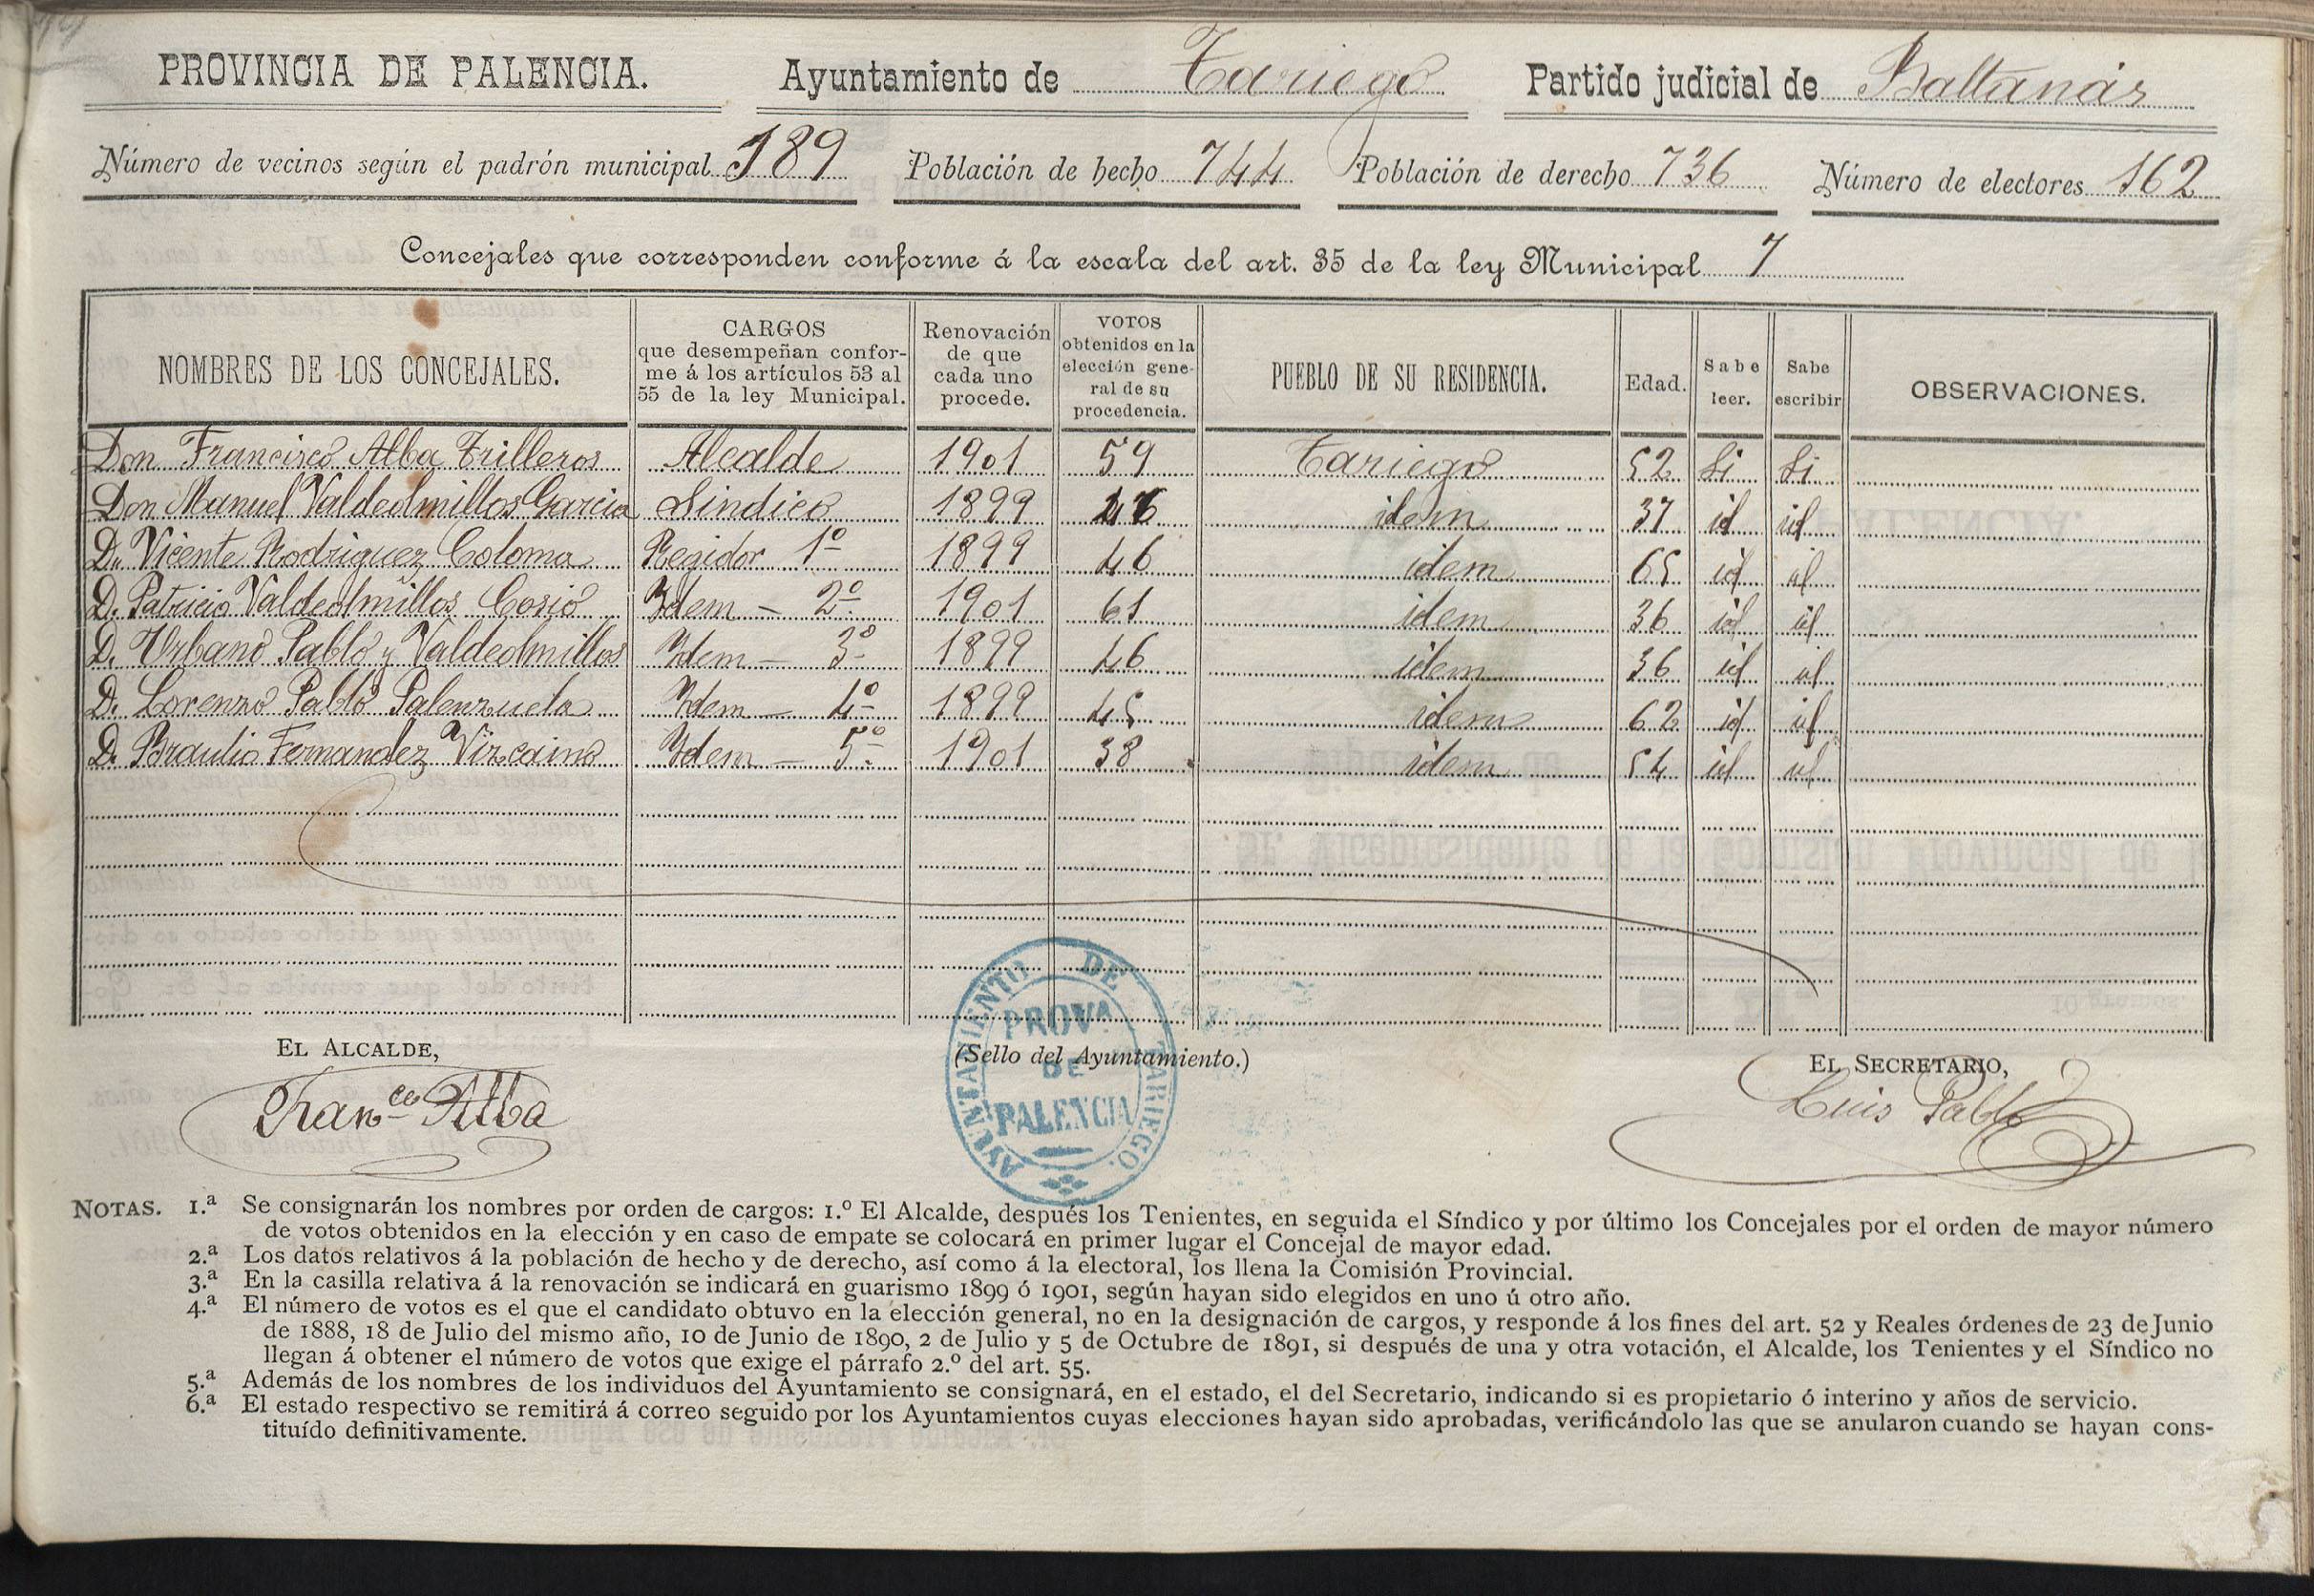 PROVINCIA DE PALENCIA. Ayuntamiento de Tariego Partido judicial de Baltanás
Número de vecinos según el padrón municipal 189 Población de hecho 744 Población de derecho 736 Número de electores 162
Concejales que corresponden conforme á la escala del art. 35 de la ley Municipal 7
NOMBRES DE LOS CONCEJALES. CARGOS que desempeñan conforme á los artículos 53 al 55 de la ley Municipal. Renovación de que cada uno procede. VOTOS obtenidos en la elección general de su procedencia. PUEBLO DE SU RESIDENCIA. Edad. Sabe leer. Sabe escribir OBSERVACIONES.
Don Francisco Alba Trilleros Alcalde 1901 59 Tariego 52 Si Si
Don Manuel Valdeolmillos Garcia Sindico 1899 46 idem 37 id id
D. Vicente Rodriguez Coloma Regidor 1º 1899 46 idem 65 id id
D. Patricio Valdeolmillos Cosio Idem - 2º 1901 61 idem 36 id id
D. Urbano Pablo y Valdeolmillos Idem - 3º 1899 46 idem 36 id id
D. Lorenzo Pablo Palenzuela Idem - 4º 1899 45 idem 62 id id
D. Braulio Fernandez Vizcaino Idem - 5º 1901 38 idem 54 id id
EL ALCALDE, (Sello del Ayuntamiento.) EL SECRETARIO,
Franco Alba Luis Pablo
AYUNTAMIENTO DE TARIEGO.
PROVª
DE
PALENCIA
NOTAS. 1.ª Se consignarán los nombres por orden de cargos: 1.º El Alcalde, después los Tenientes, en seguida el Síndico y por último los Concejales por el orden de mayor número
de votos obtenidos en la elección y en caso de empate se colocará en primer lugar el Concejal de mayor edad.
2.ª Los datos relativos á la población de hecho y de derecho, así como á la electoral, los llena la Comisión Provincial.
3.ª En la casilla relativa á la renovación se indicará en guarismo 1899 ó 1901, según hayan sido elegidos en uno ú otro año.
4.ª El número de votos es el que el candidato obtuvo en la elección general, no en la designación de cargos, y responde á los fines del art. 52 y Reales órdenes de 23 de Junio
de 1888, 18 de Julio del mismo año, 10 de Junio de 1890, 2 de Julio y 5 de Octubre de 1891, si después de una y otra votación, el Alcalde, los Tenientes y el Síndico no
llegan á obtener el número de votos que exige el párrafo 2.º del art. 55.
5.ª Además de los nombres de los individuos del Ayuntamiento se consignará, en el estado, el del Secretario, indicando si es propietario ó interino y años de servicio.
6.ª El estado respectivo se remitirá á correo seguido por los Ayuntamientos cuyas elecciones hayan sido aprobadas, verificándolo las que se anularon cuando se hayan cons-
tituído definitivamente.